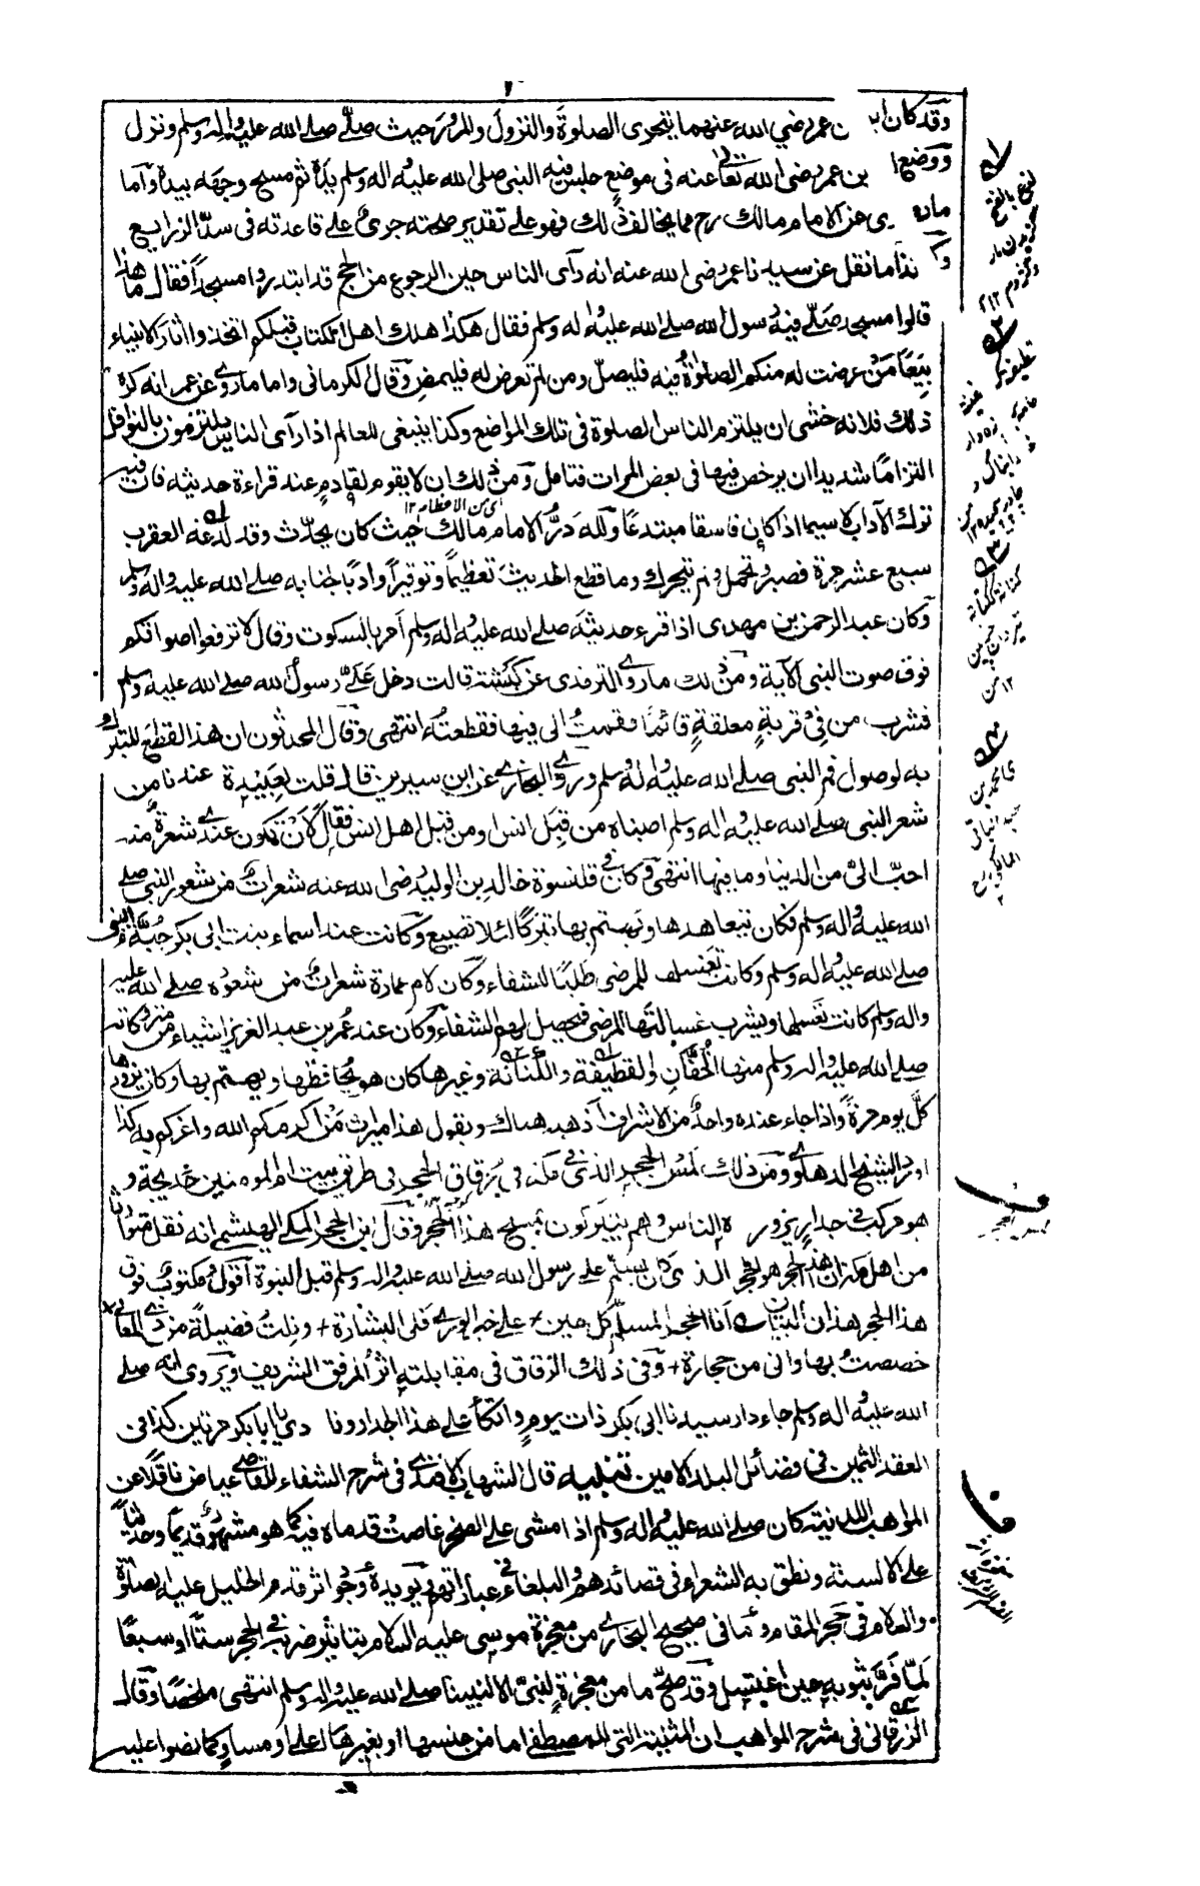 وقد كان ابن عمر رضي الله عنهما يتحرى الصلوة والنزول والمرور حيث صلى صلى الله عليه واله وسلم ونزل
ووضع ابن عمر رضى الله تعا عنه فى موضع جلس فيه النبى صلى الله عليه اله وسلم يده ثم مسح وجهه بيده واما
ما يروى عن الامام مالك رح مما يخالف ذلك فهو على تقدير صحته جرى على قاعدته فى سد الذرايع
وكذا ما نقل عن سيدنا عمر رضى الله عنه انه رآى الناس حين الرجوع من الحج قد ابتدروا مسجدا فقال ما هذا
قالوا مسجد صلى فيه رسول الله صلى الله عليه اله وسلم فقال هكذا هلك اهل الكتاب قبلكم اتخذوا اثار الانبياء
بيعا من عرضت له منكم الصلوة فيه فليصل ومن لم تعرض له فليمض وقال الكرمانى واما ما روى عن عمر انه كره
ذلك فلانه خشى ان يلتزم الناس الصلوة فى تلك المواضع وكذا ينبغى للعالم اذا رآى الناس يلتزمون بالنوافل
التزاما شديدا ان يرخص فيها فى بعض المرات فتامل ومن ذلك ان لا يقوم لقادم عند قراءة حديثه فان فيه
ترك الآداب لا سيما اذا كان فاسقا مبتدعا ولله در الامام مالك حيث كان يحدث وقد لدغه العقرب
سبع عشر مرة فصبر وتحمل ولم يتحرك وما قطع الحديث تعظيما وتوقيرا وادبا لجنابه صلى الله عليه واله وسلم
وكان عبد الرحمن بن مهدى اذا قرء حديثه صلى الله عليه اله وسلم أمر بالسكوت وقال لا ترفعوا اصواتكم
فوق صوت النبى الآية ومن ذلك ما روى الترمذى عن كبشة قالت دخل على رسول الله صلى الله عليه وسلم
فشرب من فى قربة معلقة قائما فقمت الى فيها فقطعته انتهى وقال المحدثون ان هذا القطع للتبرك
به لوصول فم النبى صلى الله عليه اله وسلم وروى البخارى عن ابن سيرين قال قلت لعبيدة عندنا من
شعر النبى صلى الله عليه اله وسلم اصبناه من قبل انس او من قبل اهل انس فقال لان تكون عندى شعرة منه
احب الى من الدنيا وما فيها انتهى وكان فى قلنسوة خالد بن الوليد رضى الله عنه شعرات من شعر النبى صلى
الله عليه اله وسلم فكان يتعاهدها ويهتم بها تبركا لئلا تضيع وكانت عند اسماء بنت ابى بكر جبة النبى
صلى الله عليه اله وسلم وكانت تغسلها للمرضى طلبا للشفاء وكان لام عمارة شعرات من شعوره صلى الله عليه
واله وسلم كانت تغسلها ويشرب غسالتها المرضى فيحصل لهم الشفاء وكان عند عمر بن عبد العزيز اشياء من متروكاته
صلى الله عليه واله وسلم منها الخفان والقطيفة والكنانة وغيرها كان هو يحافظها ويهتم بها وكان يزورها
كل يوم مرة واذا جاء عنده واحد من الاشراف ذهب هناك ويقول هذا ميراث من اكرمكم الله واعزكم به كذا
اورد الشيخ الدهلوى ومن ذلك لمس الحجر الذى فى مكة فى زقاق الحجر فى طريق بيت ام المومنين خديجة و
هو مركب فى جدار يزوره الناس وهم يتبركون بمسح هذا الحجر وقال ابن الحجر المكى الهيثمى انه نقل متواترا
من اهل مكة ان هذا الحجر هو الحجر الذى كان يسلم على رسول الله صلى الله عليه واله وسلم قبل النبوة اقول ومكتوب فوق
هذا الحجر هذان البيتان انا الحجر المسلم كل حين + على خير الورى فلى البشارة + ونلت فضيلة من ذى المعالى
خصصت بها وانى من حجارة + وفى ذلك الزقاق فى مقابلته اثر المرفق الشريف ويروى انه صلى
الله عليه اله وسلم جاء دار سيدنا ابى بكر ذات يوم واتكأ على هذا الجدار ونادى يا ابا بكر مرتين كذا فى
العقد الثمين فى فضائل البلد الامين تنبيه قال الشهاب الافندى فى شرح الشفاء للقاضى عياض ناقلا عن
المواهب اللدنية كان صلى الله عليه اله وسلم اذا مشى على الصخر غاصت قدماه فيه كما هو مشهور قديما وحديثا
على الالسنة ونطق به الشعراء فى قصائدهم والبلغاء فى عباراتهم ويويده وجود اثر قدم الخليل عليه الصلوة
والسلام فى حجر المقام وما فى صحيح البخارى من معجزة موسى عليه السلام بتاثير ضربه فى الحجر ستا او سبعا
لما فر بثوبه حين اغتسل وقد صح ما من معجزة لنبى الا لنبينا صلى الله عليه واله وسلم انتهى ملخصا وقال
الزرقانى فى شرح المواهب ان المثبتة التى للمصطفى اما من جنسها او بغيرها اعلى او مساو كما نصوا عليه